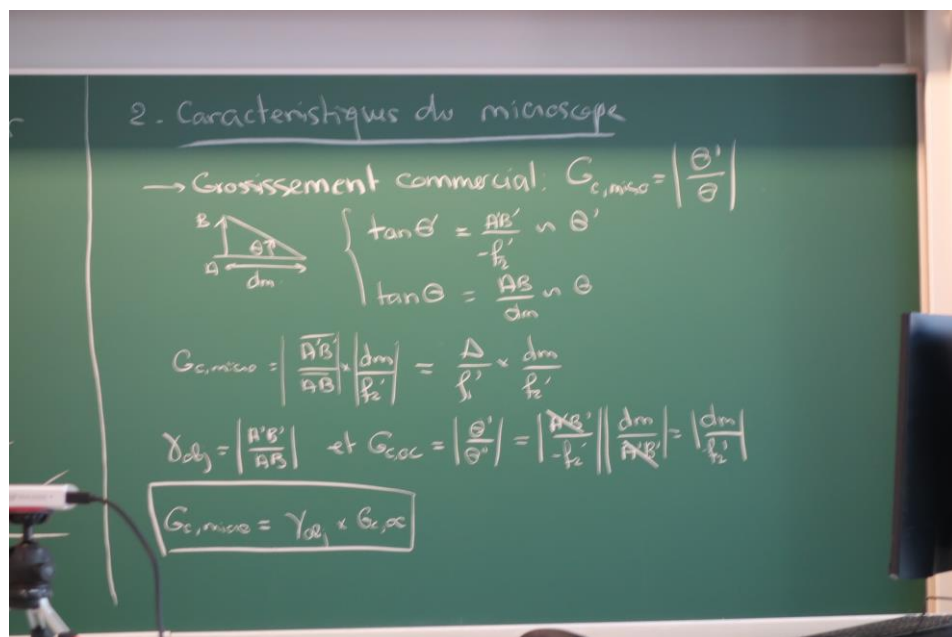 2. Caracteristiques du microscope
→ Grossissement commercial: G_{c,micro} = |θ'/θ|
B
A
θ
dm
tan θ' = A'B'/-f₂' ∼ θ'
tan θ = AB/dm ∼ θ
G_{c,micro} = |A̅'̅B̅'̅/A̅B̅| × |dm/f₂'| = Δ/f₁' × dm/f₂'
γ_{obj} = |A'B'/AB| et G_{c,oc} = |θ'/θ''| = |A'B'/-f₂'| |dm/A'B'| = |dm/f₂'|
G_{c,micro} = γ_{obj} × G_{c,oc}